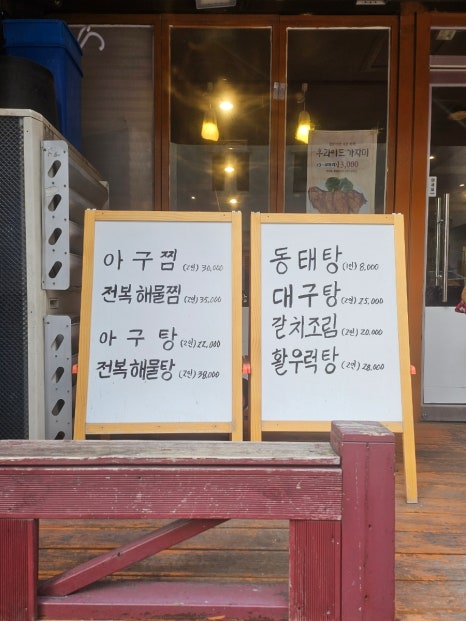 후라이드 가자미
13,000
아구찜 (2인) 30,000
전복해물찜 (2인) 35,000
아구탕 (2인) 22,000
전복해물탕 (2인) 38,000
동태탕 (1인) 8,000
대구탕 (2인) 25,000
갈치조림 (2인) 20,000
활우럭탕 (2인) 28,000